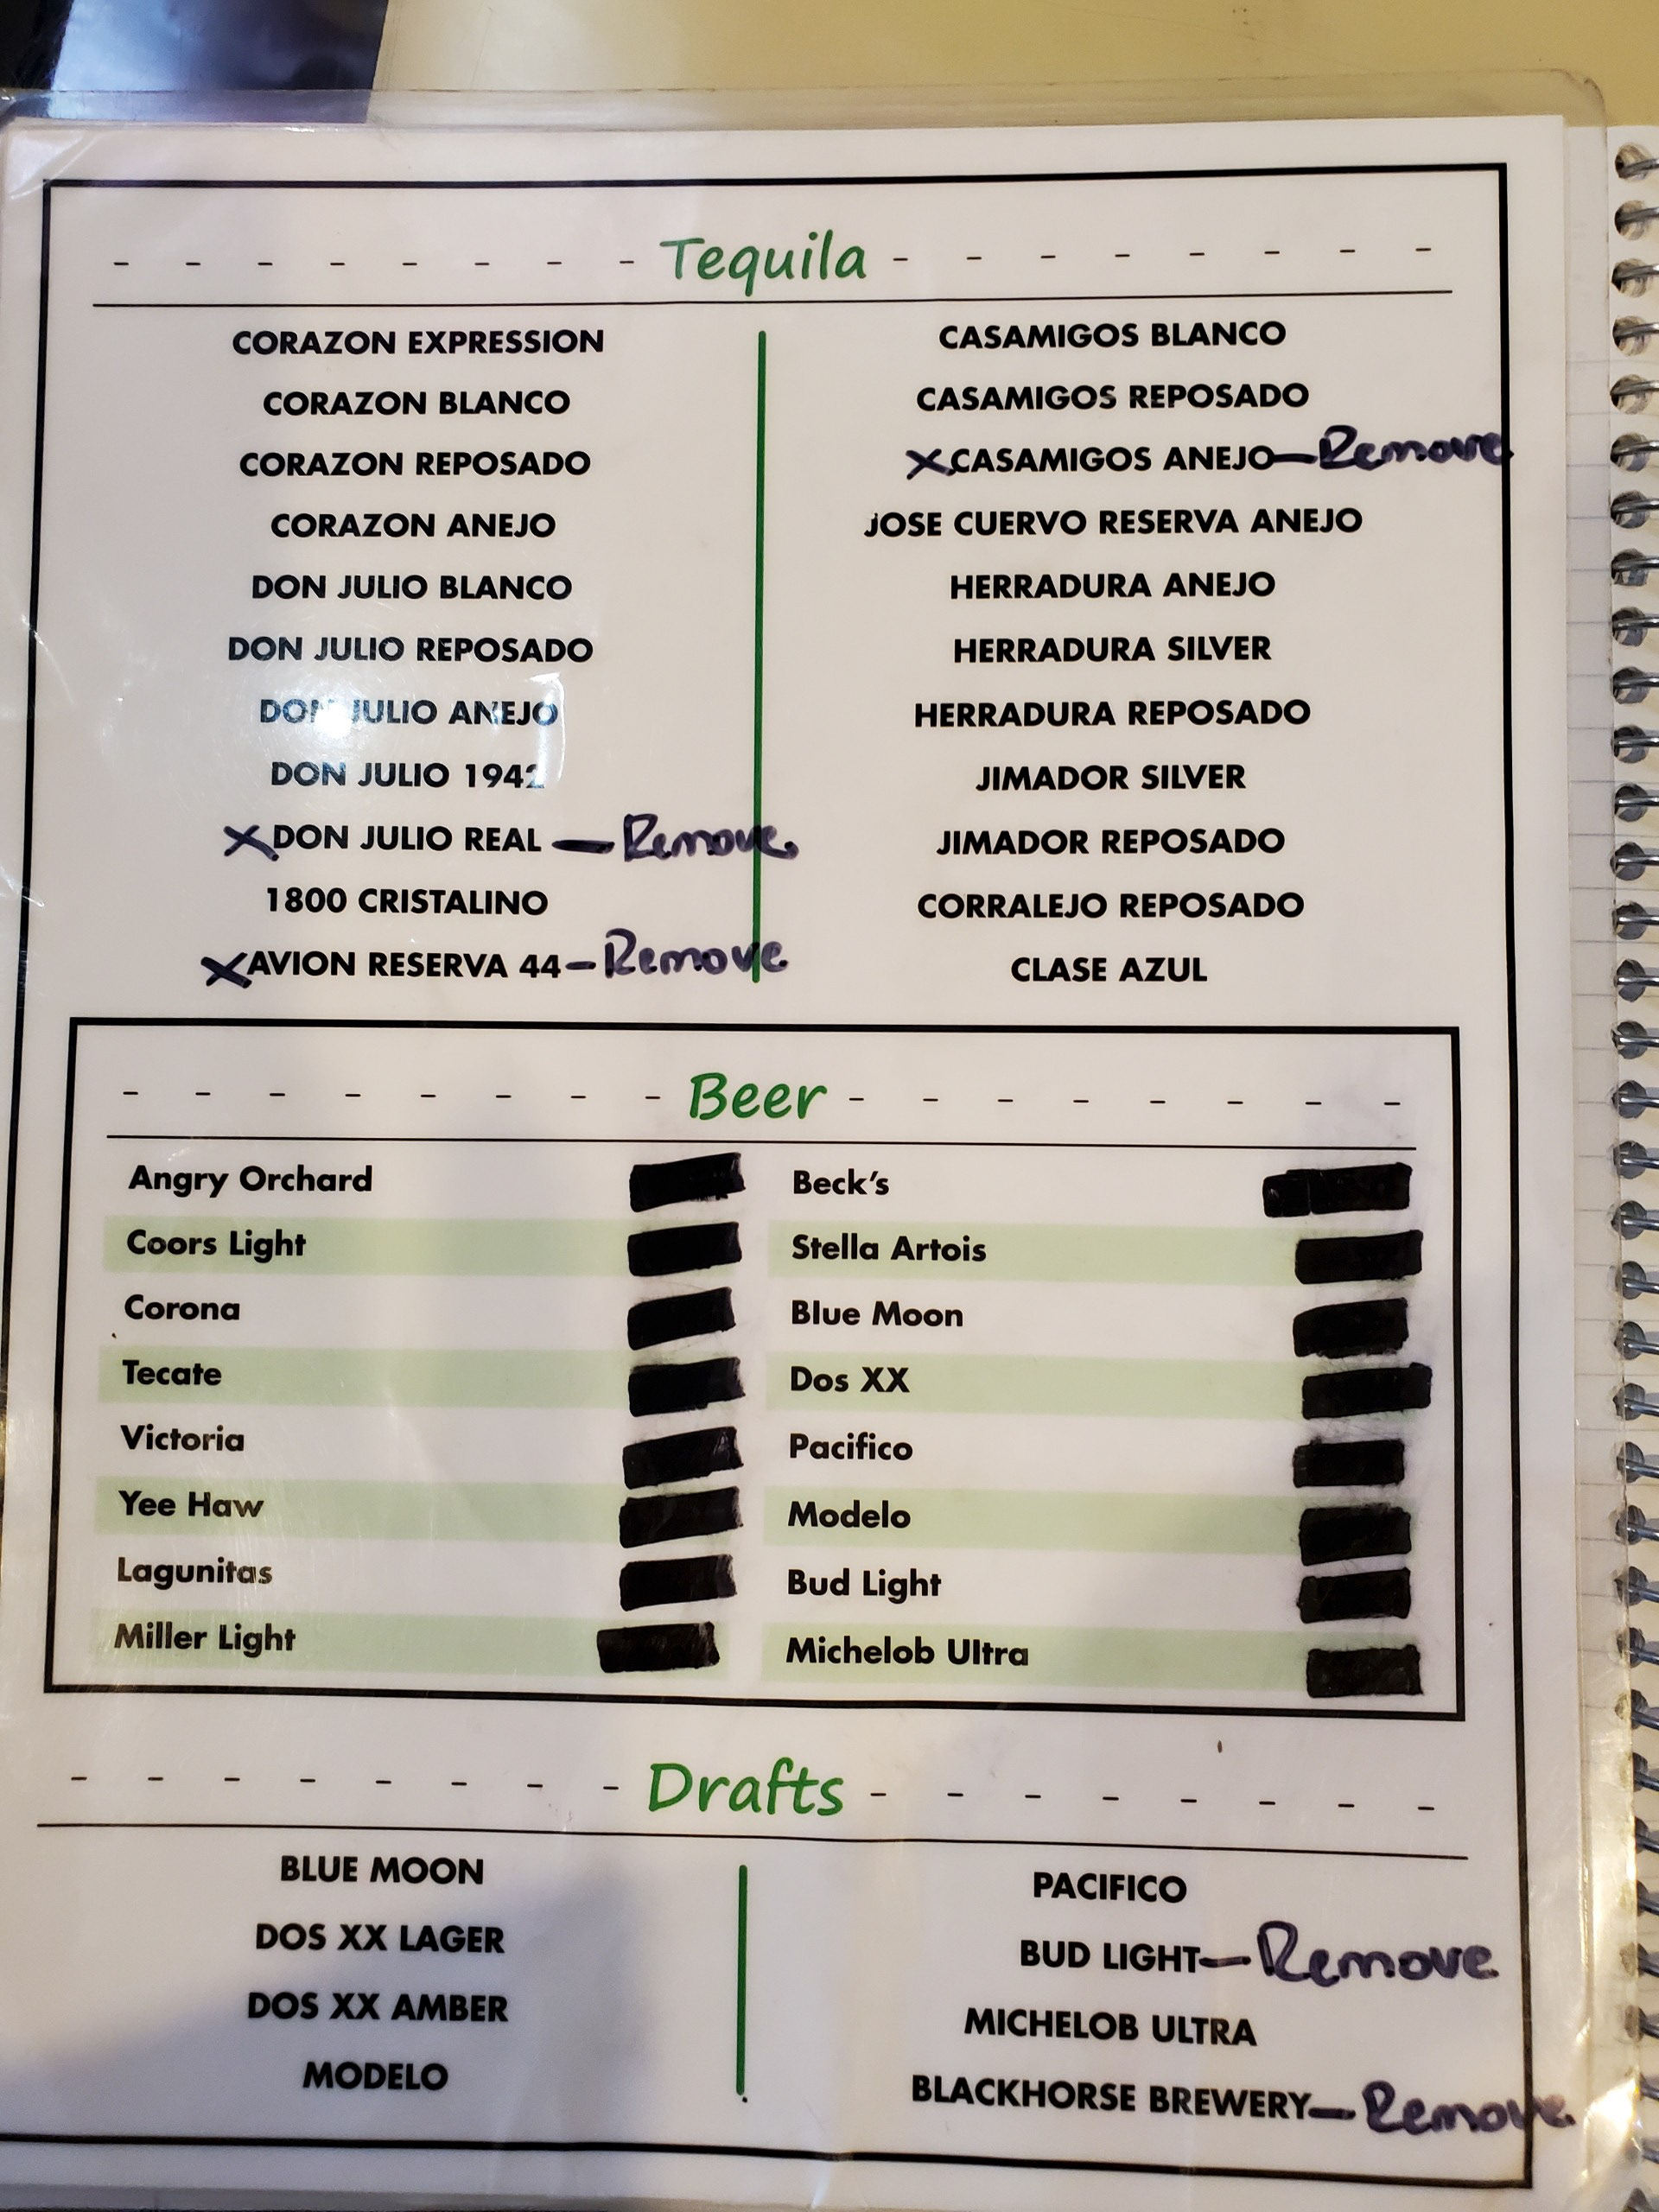 Tequila
CORAZON EXPRESSION
CORAZON BLANCO
CORAZON REPOSADO
CORAZON ANEJO
DON JULIO BLANCO
DON JULIO REPOSADO
DON JULIO ANEJO
DON JULIO 1942
X DON JULIO REAL - Remove
1800 CRISTALINO
X AVION RESERVA 44 - Remove
CASAMIGOS BLANCO
CASAMIGOS REPOSADO
X CASAMIGOS ANEJO - Remove
JOSE CUERVO RESERVA ANEJO
HERRADURA ANEJO
HERRADURA SILVER
HERRADURA REPOSADO
JIMADOR SILVER
JIMADOR REPOSADO
CORRALEJO REPOSADO
CLASE AZUL
Beer
Angry Orchard
Coors Light
Corona
Tecate
Victoria
Yee Haw
Lagunitas
Miller Light
Beck's
Stella Artois
Blue Moon
Dos XX
Pacifico
Modelo
Bud Light
Michelob Ultra
Drafts
BLUE MOON
DOS XX LAGER
DOS XX AMBER
MODELO
PACIFICO
BUD LIGHT - Remove
MICHELOB ULTRA
BLACKHORSE BREWERY - Remove